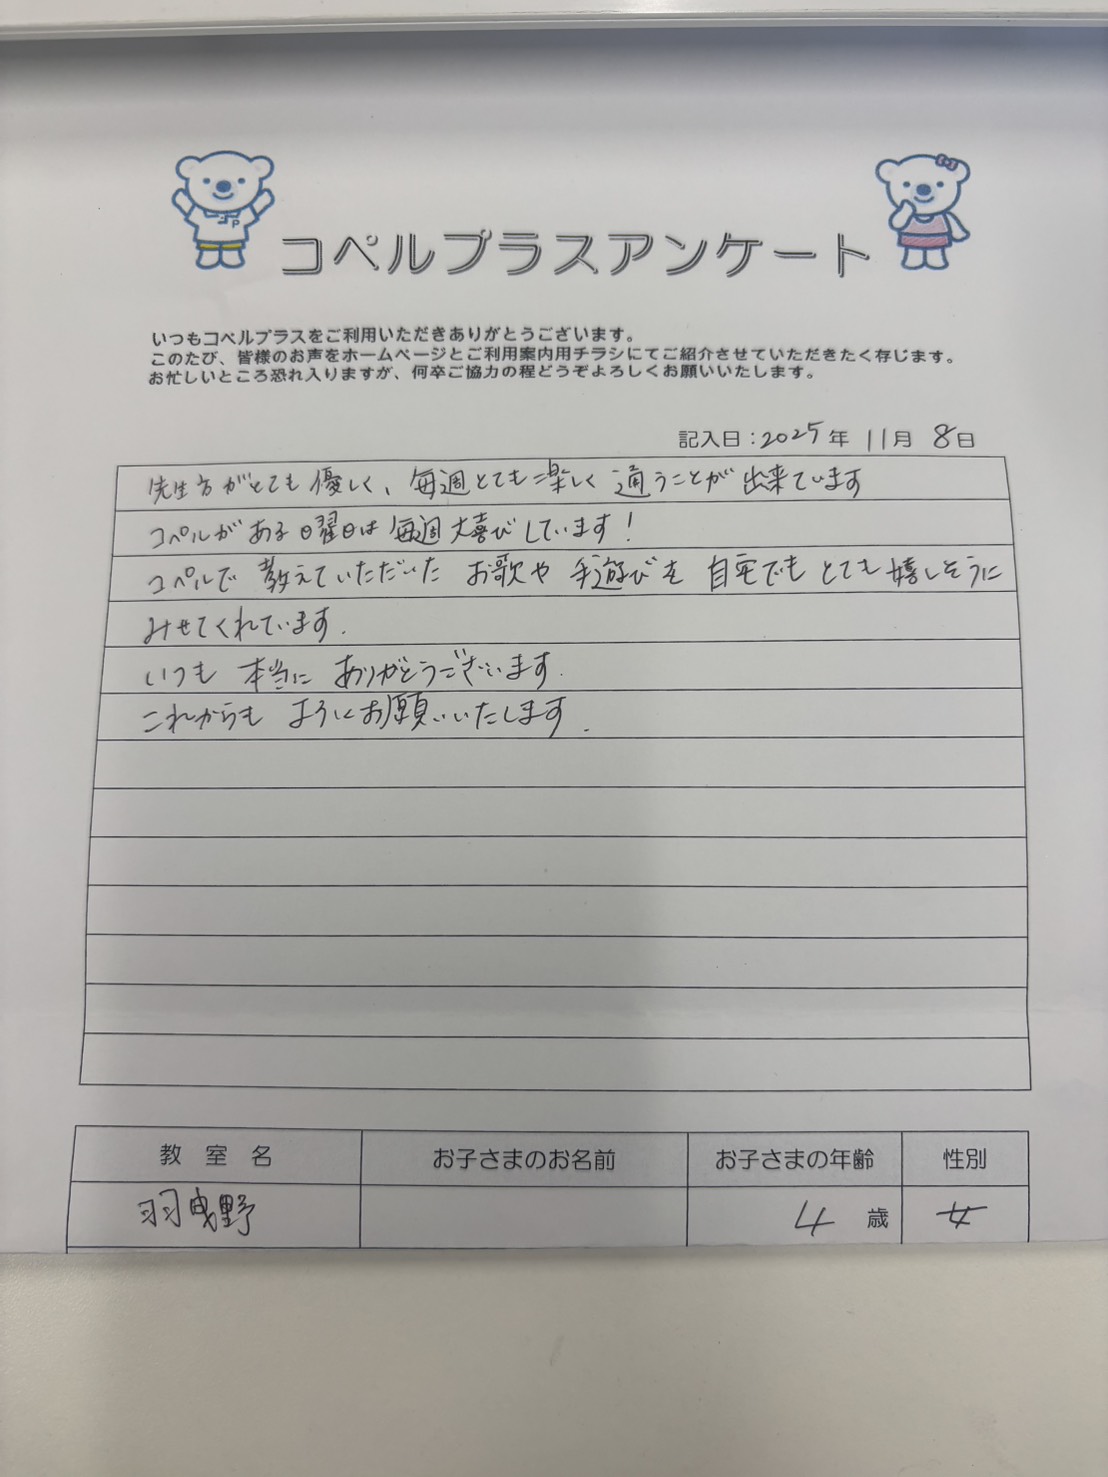 コペルプラスアンケート
いつもコペルプラスをご利用いただきありがとうございます。
このたび、皆様のお声をホームページとご利用案内用チラシにてご紹介させていただきたく存じます。
お忙しいところ恐れ入りますが、何卒ご協力の程どうぞよろしくお願いいたします。
記入日：2025年 11月 8日
先生方がとても優しく、毎週とても楽しく通うことが出来ています
コペルがある日曜日は毎週大喜びしています！
コペルで教えていただいたお歌や手遊びを自宅でもとても嬉しそうに
みせてくれています.
いつも本当にありがとうございます.
これからもよろしくお願いいたします.
教室名 お子さまのお名前 お子さまの年齢 性別
羽曳野 4歳 女